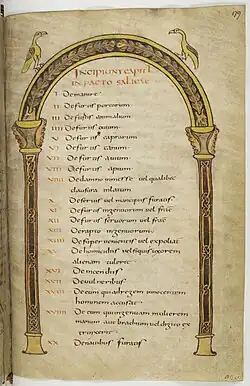 INCIPIUNT CAPITL
IN PACTO SALICAE
I De manire
II De furtis porcorum
III De furtis animalium
IIII De furtis ouium
V De furtis caprarum
VI De furtis canum
VII De furtis auium
VIII De furtis apium
VIIII De damno in messe uel qualibet
clausura inlatum
X De seruis uel mancipiis furatis
XI De furtis ingenuorum uel
XII De furtis seruorum uel
XIII De rapto ingenuorum
XIIII De super uenientis uel expoliat
XV De homicidiis uel si quis uxorem
alienam tulerit
XVI De incendiis
XVII De uulneribus
XVIII De eum qui ad regem innocentem
hominem accusat
XVIIII De eum qui ingenuam mulierem
manum aut brachium uel digito ex
trinxerit
XX De nauibus furatis